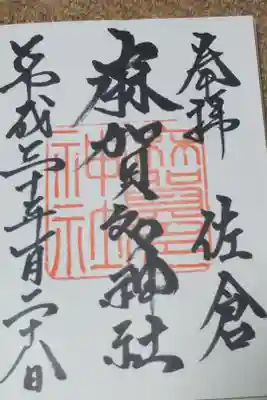 奉拝　佐倉
麻賀多神社
平成三十年一月二十八日